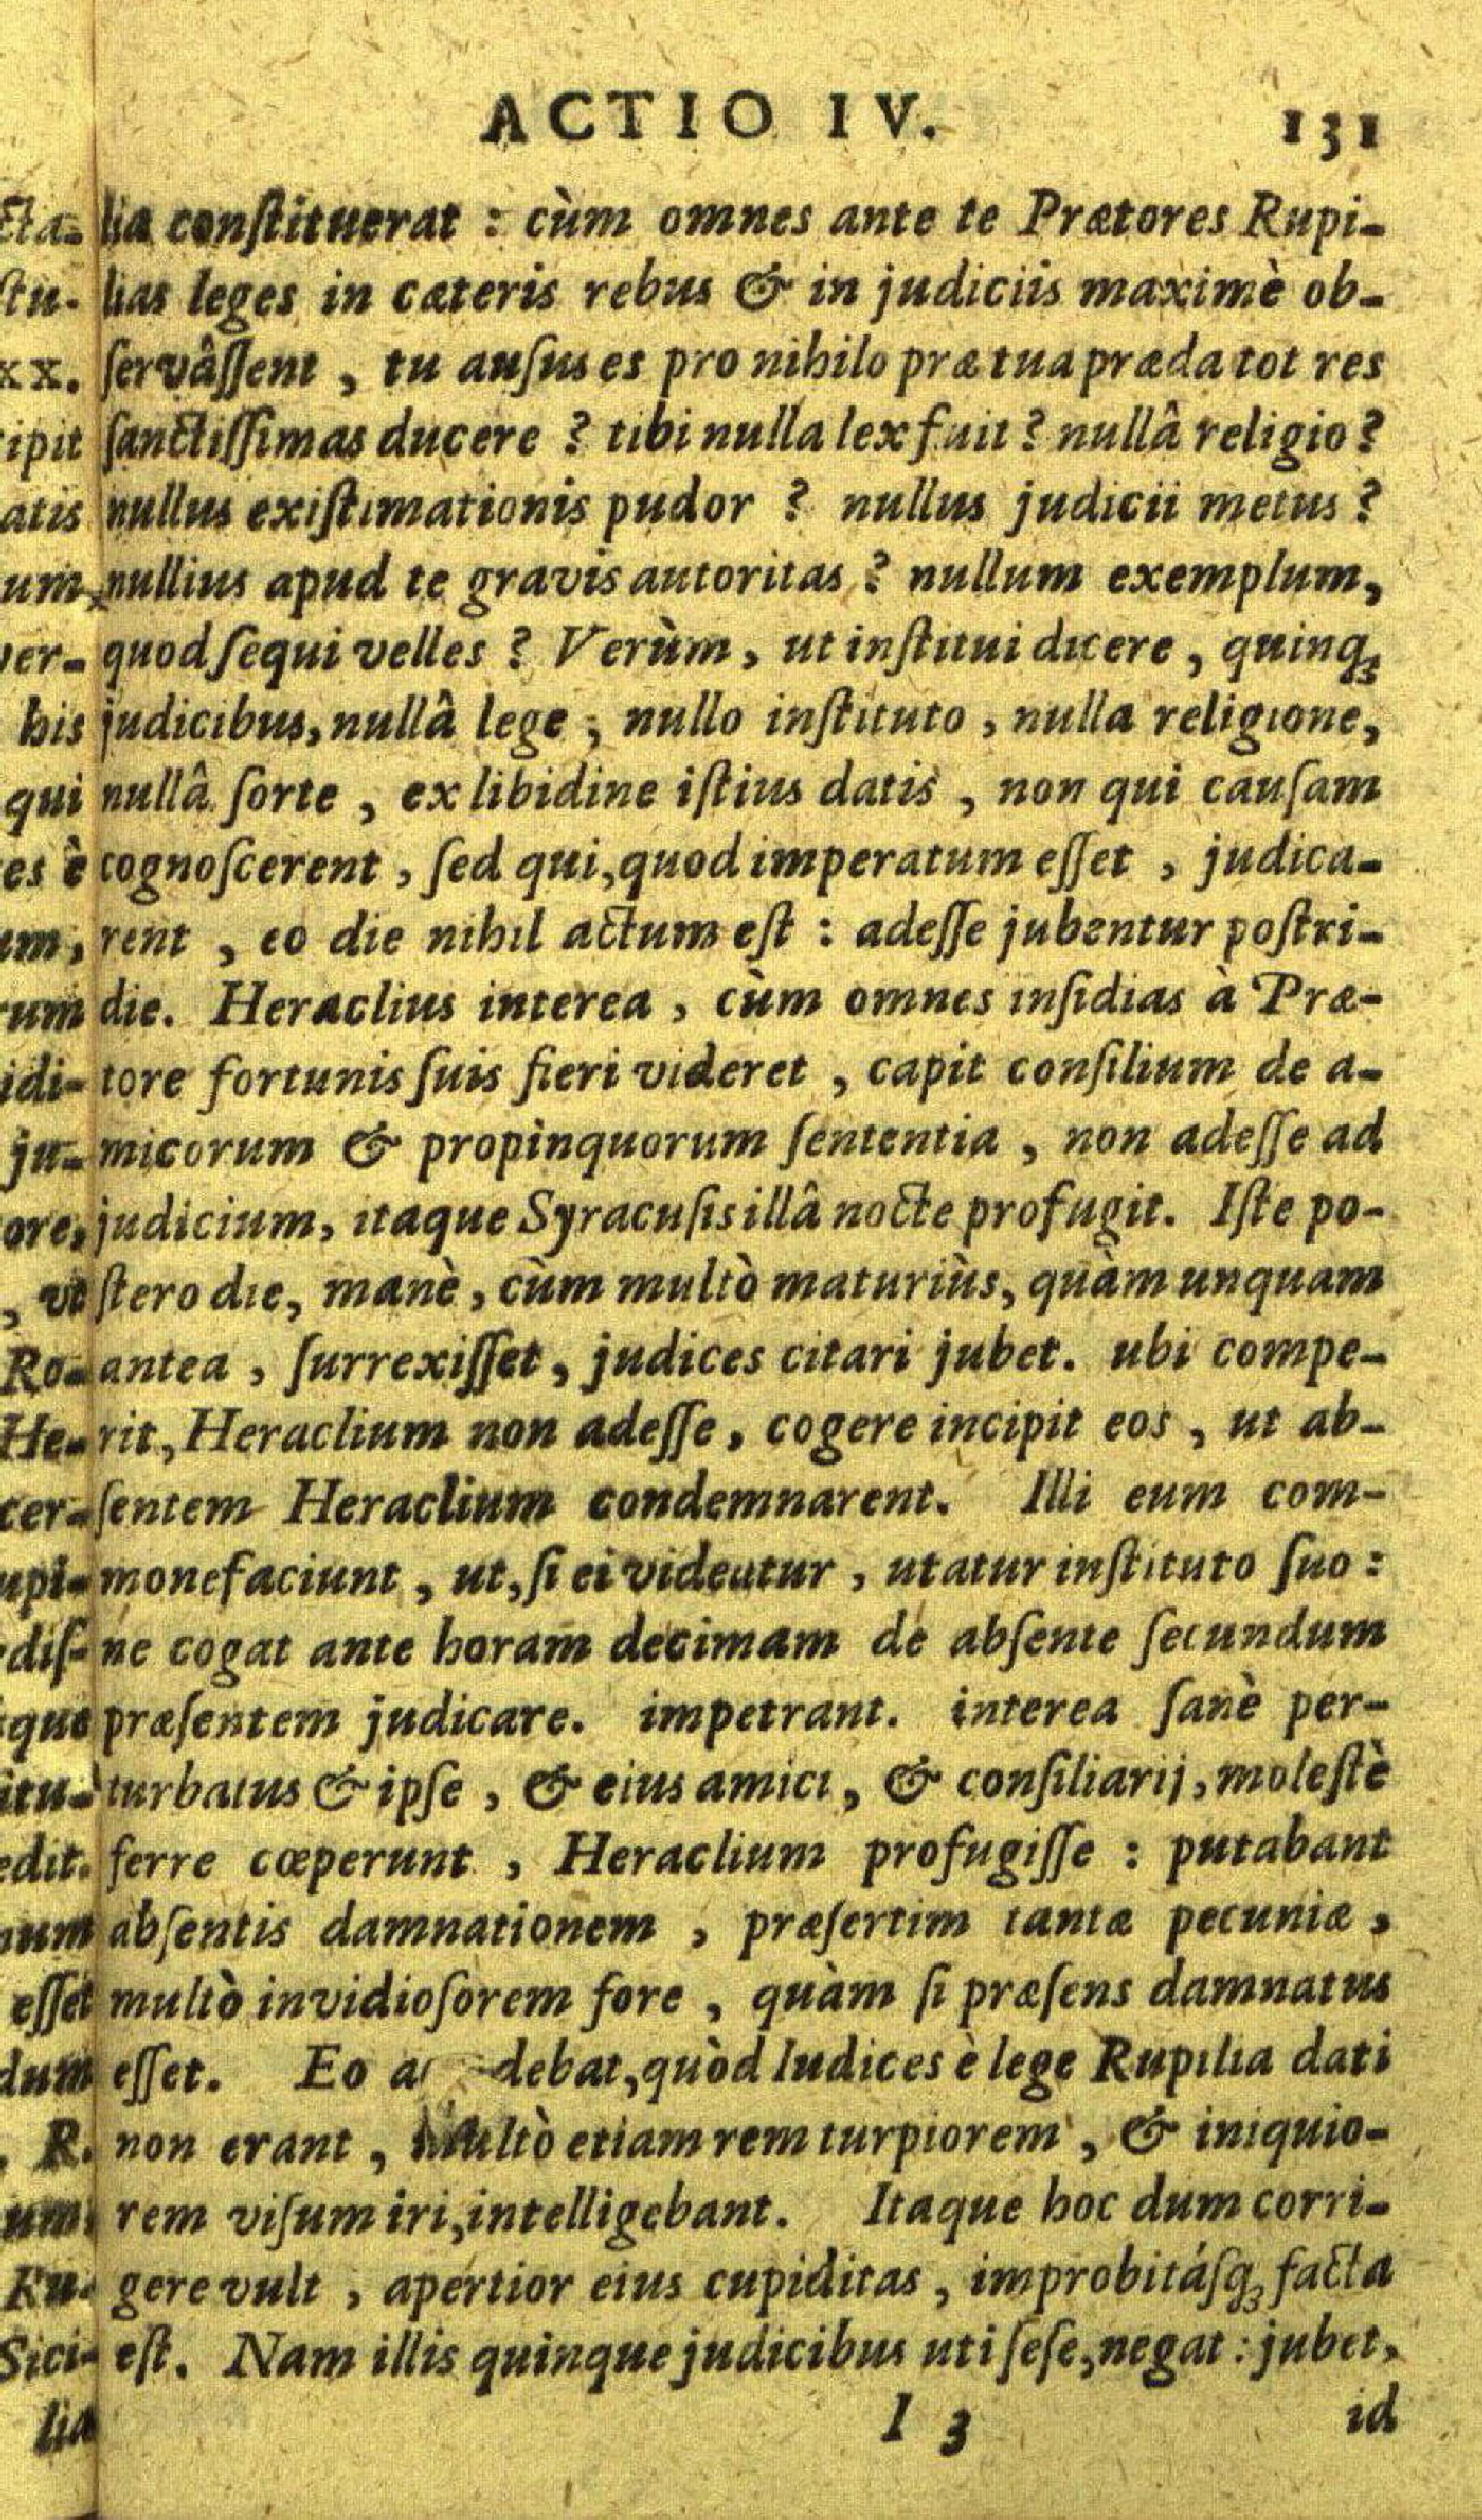 ACTIO IV. 131
lia conſtituerat : cùm omnes ante te Prætores Rupi-
lias leges in cæteris rebus & in judiciis maximè ob-
ſervâſſent , tu auſus es pro nihilo præ tua præda tot res
ſanctiſſimas ducere ? tibi nulla lex fuit ? nullâ religio ?
nullus exiſtimationis pudor ? nullus judicii metus ?
nullius apud te gravis autoritas ? nullum exemplum,
quod ſequi velles ? Verùm, ut inſtitui dicere , quinq;
judicibus, nullâ lege , nullo inſtituto , nulla religione,
nullâ ſorte , ex libidine iſtius datis , non qui cauſam
cognoſcerent , ſed qui, quod imperatum eſſet , judica-
rent , eo die nihil actum eſt : adeſſe jubentur poſtri-
die. Heraclius interea , cùm omnes inſidias à Præ-
tore fortunis ſuis fieri videret , capit conſilium de a-
micorum & propinquorum ſententia , non adeſſe ad
judicium, itaque Syracuſis illâ nocte profugit. Iſte po-
ſtero die, manè, cùm multò maturiùs, quàm unquam
antea , ſurrexiſſet, judices citari jubet. ubi compe-
rit, Heraclium non adeſſe, cogere incipit eos , ut ab-
ſentem Heraclium condemnarent. Illi eum com-
monefaciunt , ut, ſi ei videatur , utatur inſtituto ſuo :
ne cogat ante horam decimam de abſente ſecundum
præſentem judicare. impetrant. interea ſanè per-
turbatus & ipſe , & eius amici , & conſiliarij, moleſtè
ferre cœperunt , Heraclium profugiſſe : putabant
abſentis damnationem , præſertim tantæ pecuniæ ,
multò invidioſorem fore , quàm ſi præſens damnatus
eſſet. Eo debat, quòd Iudices è lege Rupilia dati
non erant , multò etiam rem turpiorem , & iniquio-
rem viſum iri, intelligebant. Itaque hoc dum corri-
gere vult , apertior eius cupiditas , improbitáſq; facta
eſt. Nam illis quinque judicibus uti ſeſe, negat : jubet,
I 3 id